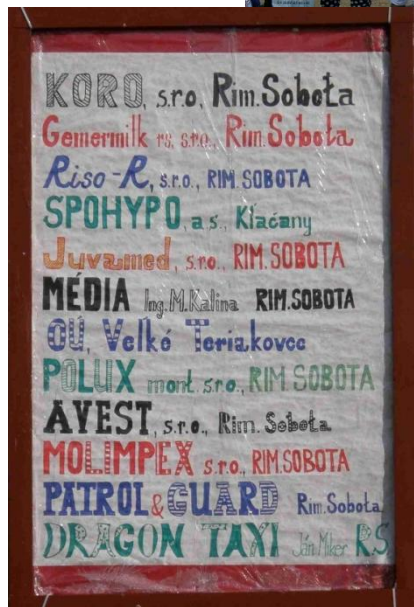 KORO, s.r.o, Rim. Sobota
Gemermilk rs, s.r.o., Rim. Sobota
Riso-R, s.r.o., RIM. SOBOTA
SPOHYPO, a.s., Kľačany
Juvamed, s.r.o., RIM. SOBOTA
MÉDIA Ing. M. Kalina RIM. SOBOTA
OÚ, Veľké Teriakovce
POLUX mont. s.r.o., RIM. SOBOTA
AVEST, s.r.o., Rim. Sobota
MOLIMPEX s.r.o., RIM. SOBOTA
PATROL & GUARD Rim. Sobota
DRAGON TAXI Ján Miker RS